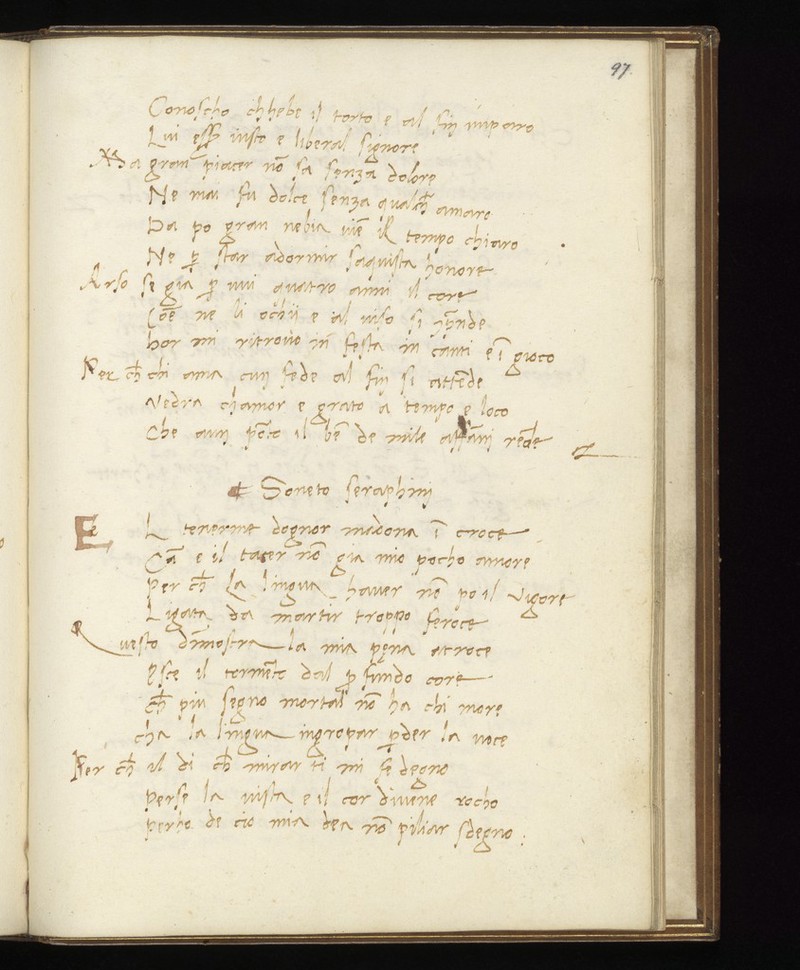 97.
Conoscho chhebe il torto e al fin imparo
Lui esser iusto e liberal signore
Ma gran piacer nō sa senza dolore
Ne mai fu dolce senza qualch̄ amaro
Da po gran nebia viē il tempo chiaro
Ne p̄ star adormir saquista honore
Arso se gia p̄ vui quatro anni il core
Coē ne li ochii e al viso si
hor mi ritrovo in festa in canti e ī gioco
Per ch̄ chi ama cun fede al fin si attēde
vedra chamor e grato a tempo e loco
Che aun pōto il bē de mile affāni rēde
Soneto seraphinj
E L tenerme dognor madona ī croce
Cā e il tacer nō gia mio pocho amore
Per ch̄ La lingua haver nō po il vigore
Ligata da martir troppo feroce
Questo dimostra la mia pena atroce
Esce il tormēto dal p̄fundo core
ch̄ piu segno mortal nō ha chi more
cha la lingua ingropar p̄der la voce
Per ch̄ il di ch̄ mirar ti mi fe degno
Perse la vista e il cor divene rocho
Perho de cio mia dea nō piliar sdegno: